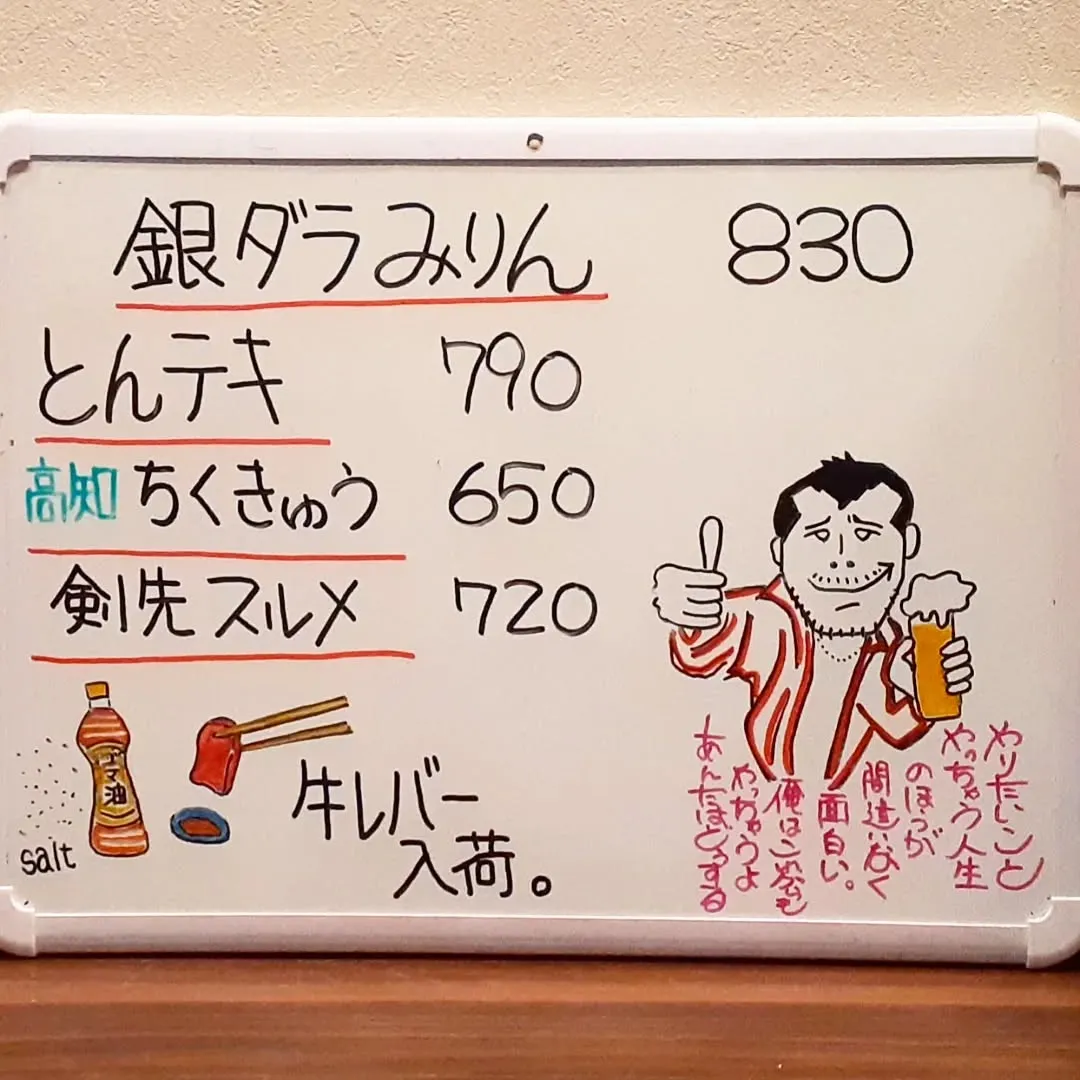 銀ダラみりん 830
とんテキ 790
高知 ちくきゅう 650
剣先スルメ 720
ゴマ油
salt
牛レバー
入荷。
やりたいこと
やっちゃう人生
のほうが
間違いなく
面白い。
俺はこれからも
やっちゃうよ
あんたはどうする